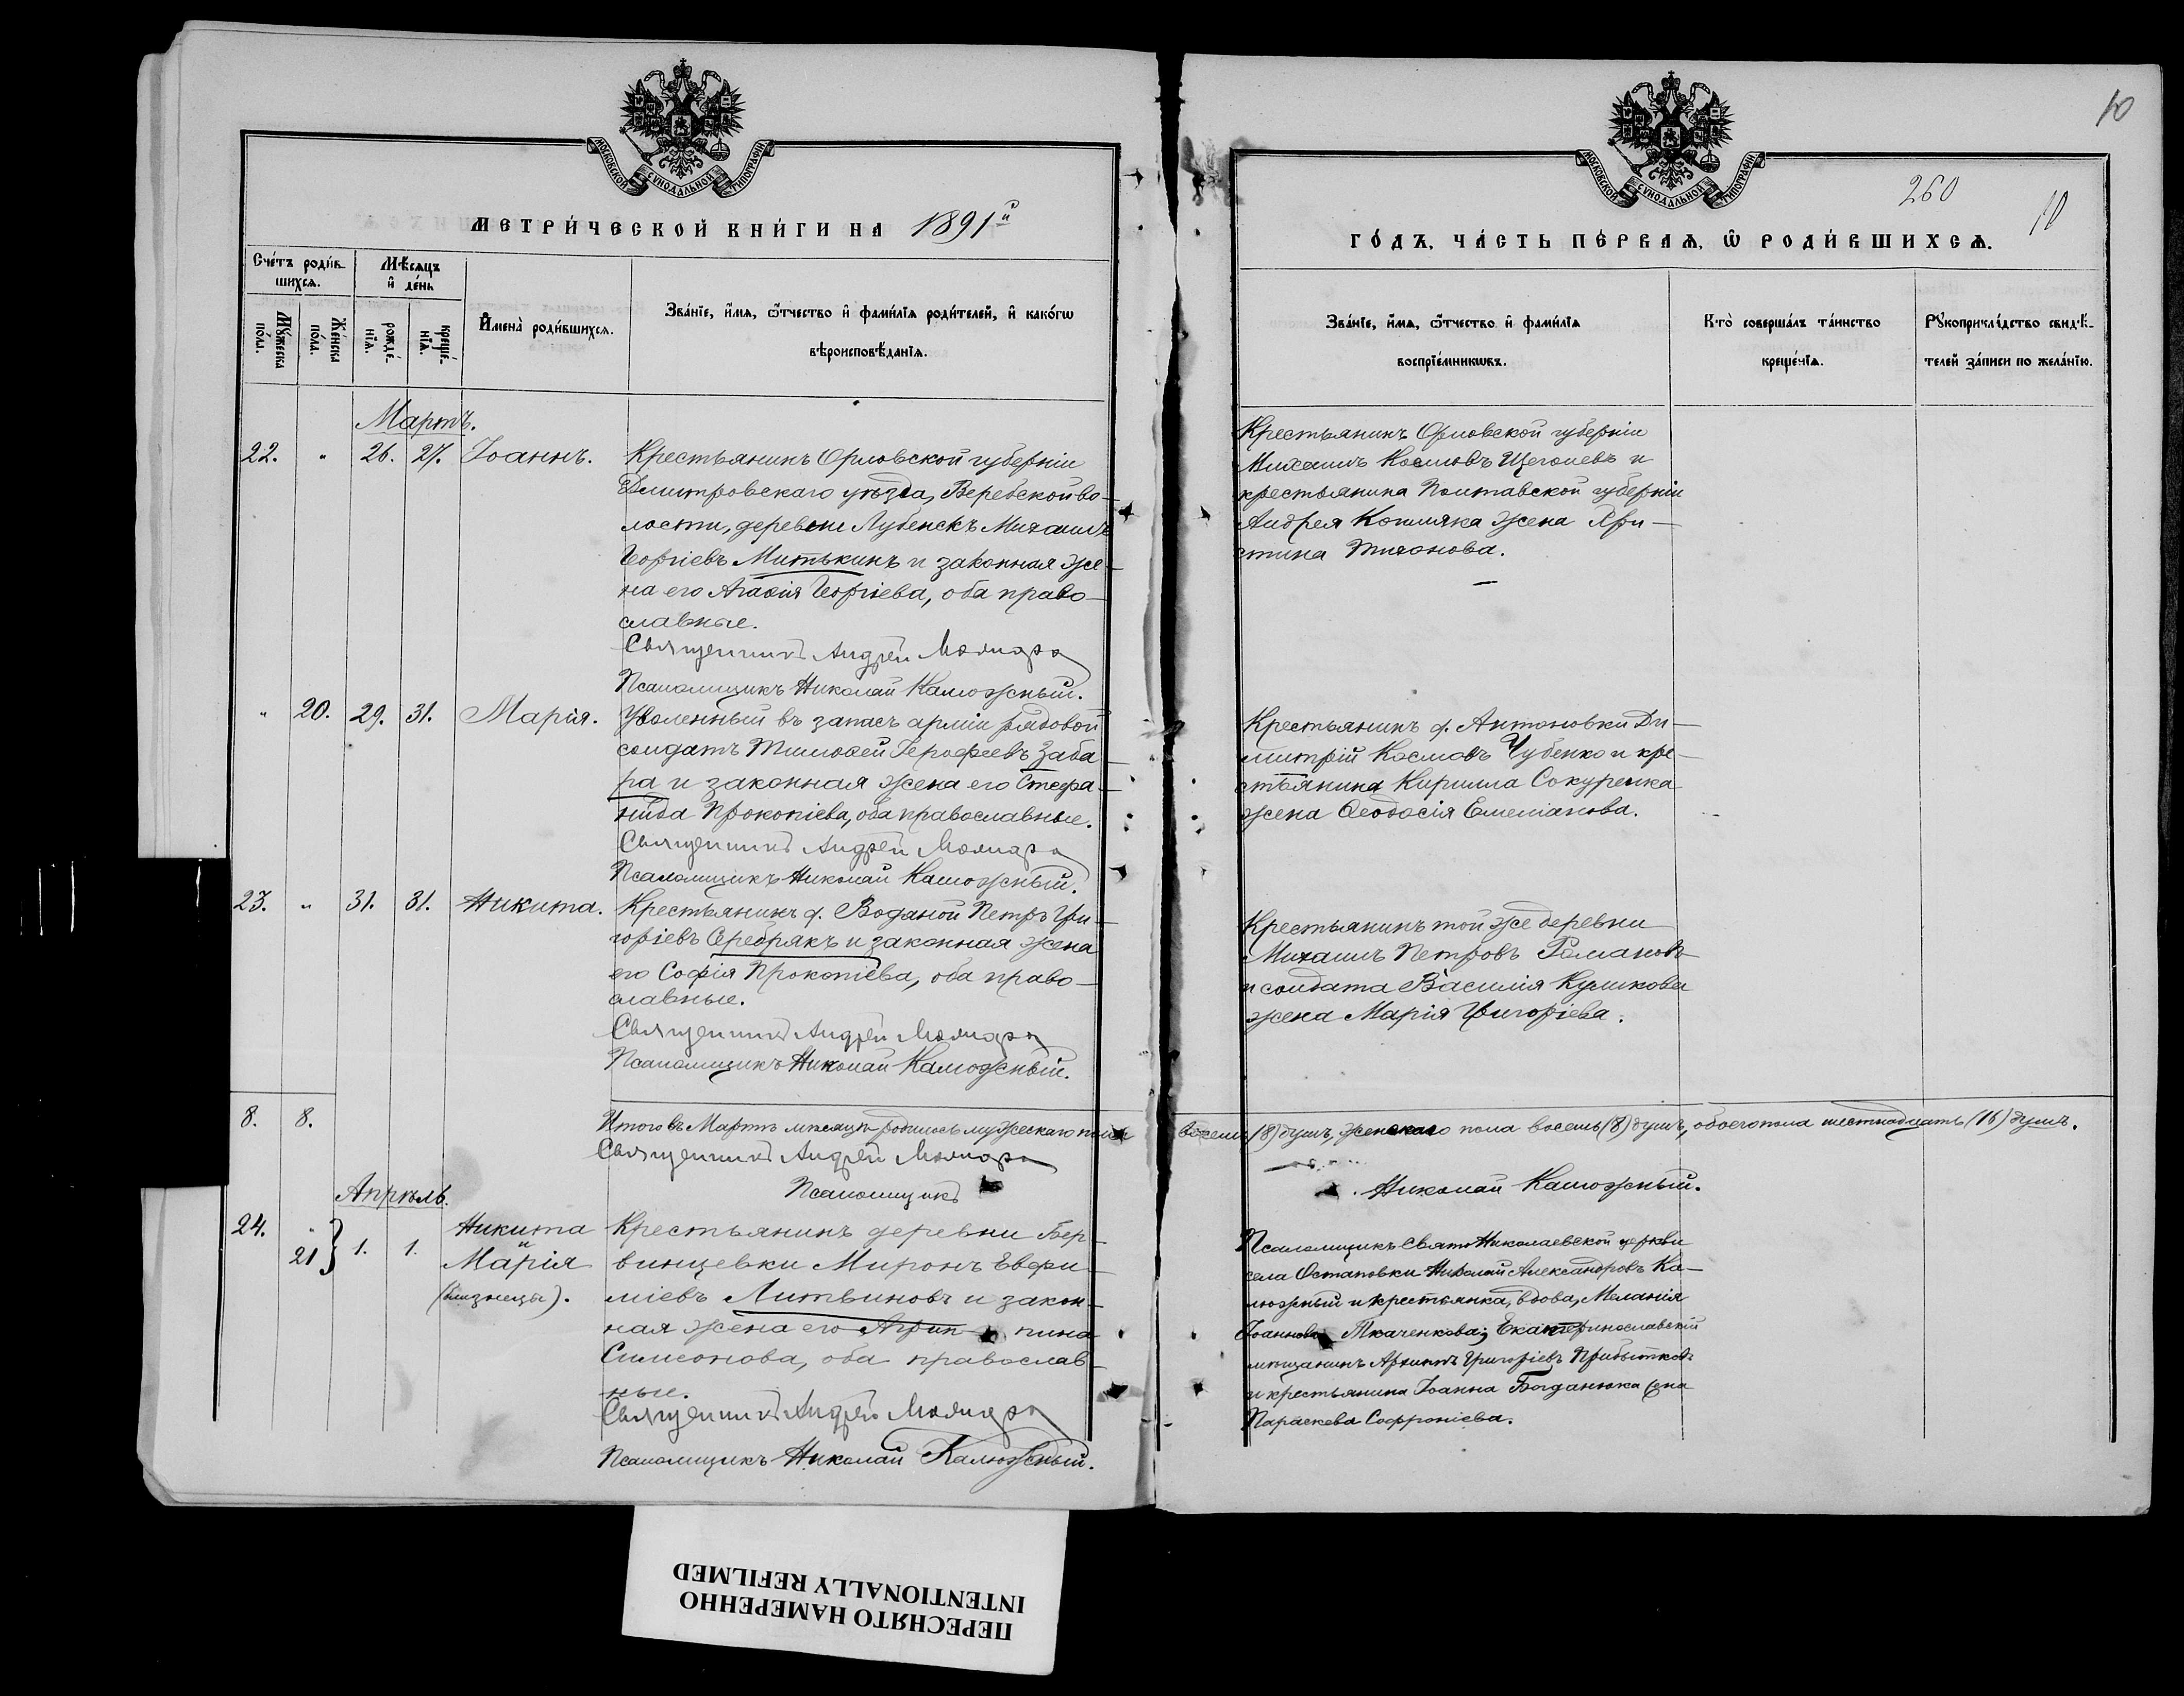 МОСКОВСКОЙ СѴНОДАЛЬНОЙ ТИПОГРАФІИ
МЕТРИ́ЧЕСКОЙ КНИ́ГИ НА 1891й
Сче́тъ роди́в-
шихсѧ.
Мѣ́сѧцъ
и҆ де́нь
Мꙋ́жеска
по́ла.
Же́нска
по́ла.
рожде́-
нїѧ.
креще́-
нїѧ.
И҆мена̀ роди́вшихсѧ.
Зва́нїе, и҆́мѧ, ѻ҆́тчество и҆ фами́лїѧ роди́телей, и҆ како́гѡ
вѣроисповѣ́данїѧ.
Мартъ.
22. " 26. 27. Іоаннъ. Крестьянинъ Орловской губерніи
Дмитровскаго уѣзда, Веребской во-
лости, деревни Лубенскъ Михаилъ
Георгіевъ Митькинъ и законная же-
на его Агаѳія Георгіева, оба право-
славные.
Священникъ Андрей
Псаломщикъ Николай Калюжный.
" 20. 29. 31. Марія. Уволенный въ запасъ арміи рядовой
солдатъ Тимоѳей Герофеевъ Заба-
ра и законная жена его Стефа-
нида Прокопіева, оба православные.
Священникъ Андрей
Псаломщикъ Николай Калюжный.
23. " 31. 31. Никита. Крестьянинъ д. Водяной Петръ Гри-
горіевъ Серебрякъ и законная жена
его Софія Прокопіева, оба право-
славные.
Священникъ Андрей
Псаломщикъ Николай Калюжный.
8. 8. Итого въ Мартѣ мѣсяцѣ родилось мужескаго пола
Священникъ Андрей
Псаломщикъ
Апрѣль.
24. "
21 } 1. 1. Никита
и
Марія
(близнецы).
Крестьянинъ деревни Бер-
винцевки Миронъ Евфи-
міевъ Литвиновъ и закон-
ная жена его Агрип пина
Симеонова, оба православ-
ные.
Священникъ Андрей
Псаломщикъ Николай Калюжный.
10
МОСКОВСКОЙ СѴНОДАЛЬНОЙ ТИПОГРАФІИ
260
10
ГО́ДЪ, ЧА́СТЬ ПЕ́РВАѦ, Ѡ҆ РОДИ́ВШИХСѦ.
Зва́нїе, и҆́мѧ, ѻ҆́тчество и҆ фами́лїѧ
воспрїе́мникѡвъ.
Кто̀ соверша́лъ та́инство
креще́нїѧ.
Рꙋкоприкла́дство свидѣ́-
телей за́писи по жела́нїю.
Крестьянинъ Орловской губерніи
Михаилъ Космовъ Щеголевъ и
крестьянина Полтавской губерніи
Андрея Кошляка жена Хри-
стина Тихонова.
Крестьянинъ д. Антоновки Ди-
митрій Космовъ Чубенко и кре-
стьянина Кирилла Сокуренка
жена Ѳеодосія Емеліанова.
Крестьянинъ той же деревни
Михаилъ Петровъ Романовъ
и солдата Василія Куликова
жена Марія Григоріева.
восемь (8) душъ, женскаго пола восемь (8) душъ, обоего пола шестнадцать (16) душъ.
Николай Калюжный.
Псаломщикъ Свято Николаевской церкви
села Остановки Николай Александровъ Ка-
люжный и крестьянка, вдова, Меланія
Іоаннова Ткаченкова; Екатеринославскій
мѣщанинъ Архипъ Григоріевъ Прибытковъ
и крестьянина Іоанна Богданюка жена
Параскева Софроніева.
ПЕРЕСНЯТО НАМЕРЕННО
INTENTIONALLY REFILMED